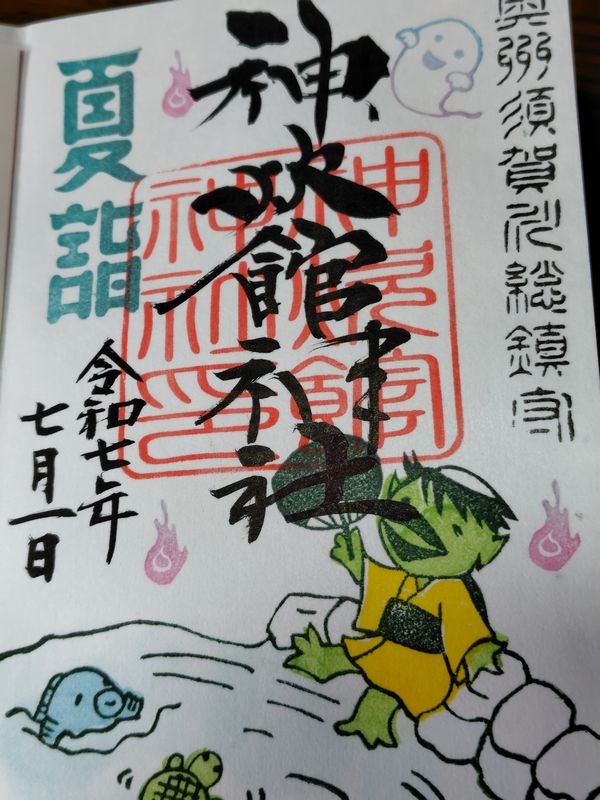 奥州須賀川総鎮守
神炊館神社
神炊館
神社印
夏詣
令和七年
七月一日